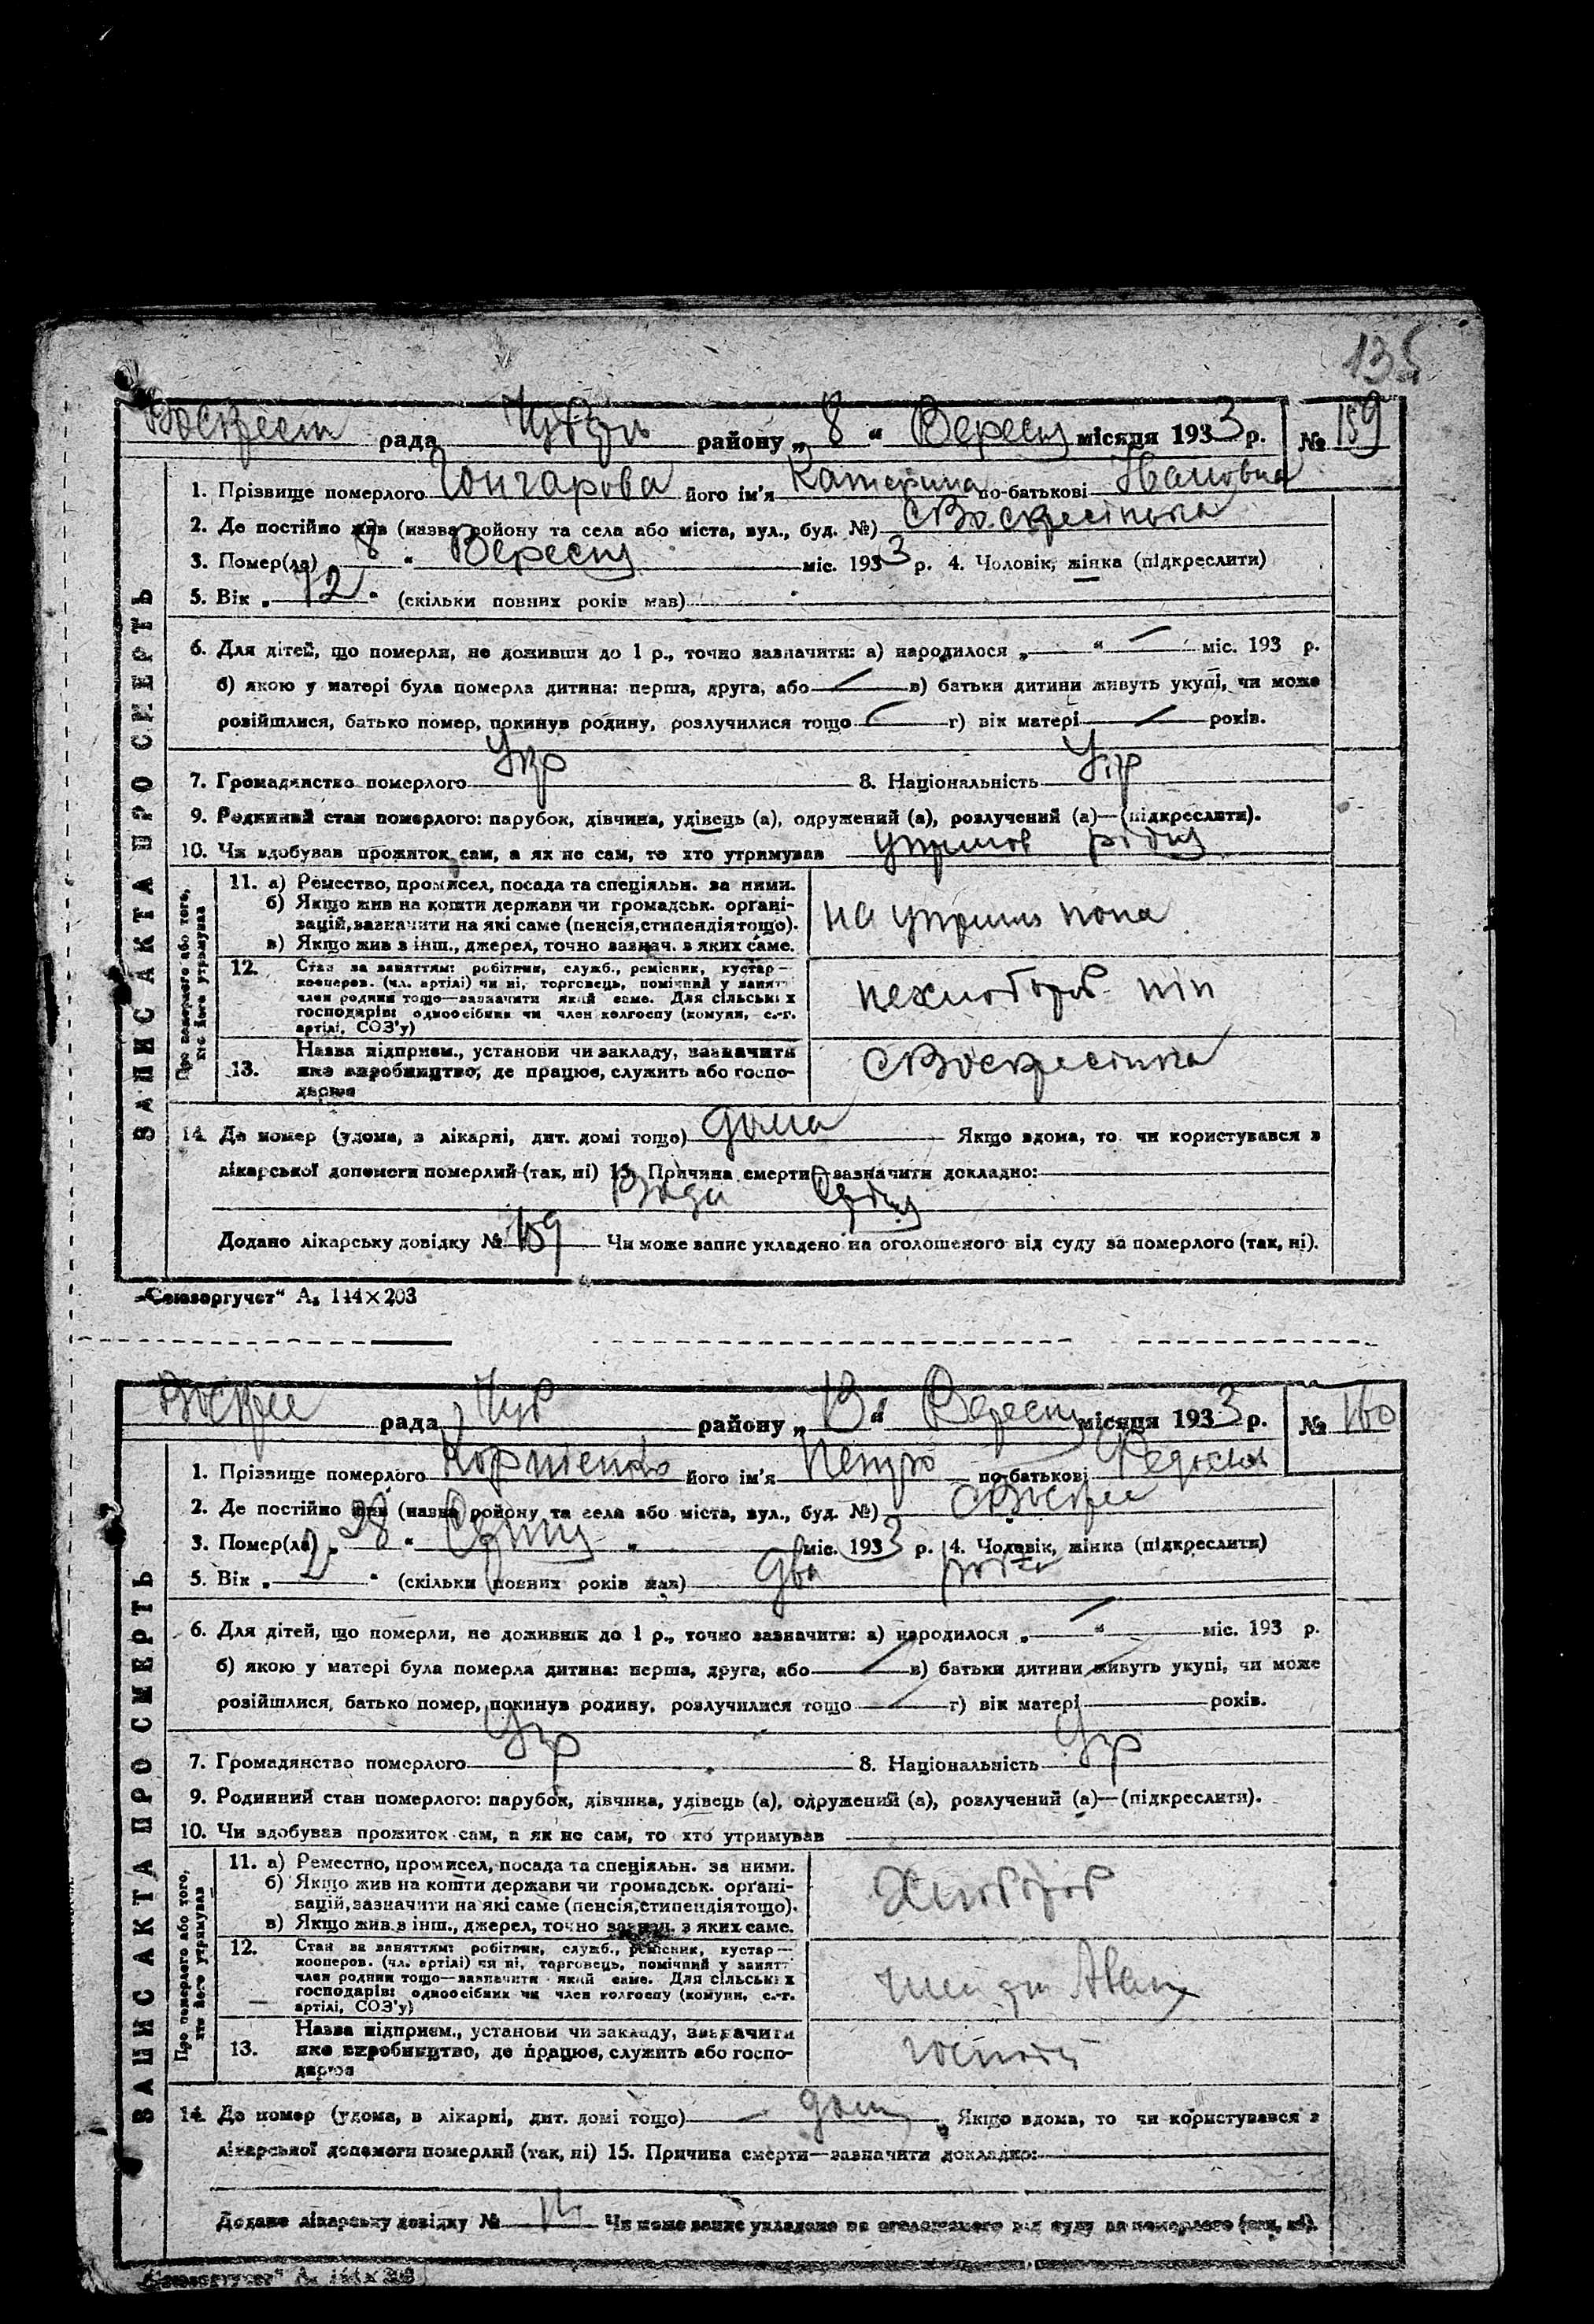 135
Воскресен рада Чубар району „ 8 “ Вересня місяця 1933 р. № 159
ЗАПИС АКТА ПРО СМЕРТЬ
1. Прізвище померлого Гончарова його ім'я Катерина по-батькові Івановна
2. Де постійно жив (назва району та села або міста, вул., буд. №) с Воскресінька
3. Помер(ла) „ 8 “ Вересня міс. 1933 р. 4. Чоловік, жінка (підкреслити)
5. Вік „ 72 “ (скільки повних років мав)
6. Для дітей, що померли, не доживши до 1 р., точно зазначити: а) народилося „ “ міс. 193 р.
б) якою у матері була померла дитина: перша, друга, або в) батьки дитини живуть укупі, чи може
розійшлися, батько помер, покинув родину, розлучилися тощо г) вік матері років.
7. Громадянство померлого Укр 8. Національність Укр
9. Родинний стан померлого: парубок, дівчина, удівець (а), одружений (а), розлучений (а)—(підкреслити).
10. Чи здобував прожиток сам, а як не сам, то хто утримував
Про померлого або того, хто його утримував
11. а) Ремество, промисел, посада та спеціяльн. за ними.
б) Якщо жив на кошти держави чи громадськ. органі-
зацій, зазначити на які саме (пенсія, стипендія тощо).
в) Якщо жив з інш., джерел, точно зазнач. з яких саме.
12. Стан за заняттям: робітник, служб., ремісник, кустар—
кооперов. (чл. артілі) чи ні, торговець, помічний у занят.
член родини тощо—зазначити який саме. Для сільських
господарів: одноосібник чи член колгоспу (комуни, с.-г.
артілі, СОЗ'у)
піп
13. Назва підприєм., установи чи закладу, зазначити
яке виробництво, де працює, служить або госпо-
дарює
с Воскресінка
14. Де помер (удома, в лікарні, дит. домі тощо) дома Якщо вдома, то чи користувався з
лікарської допомоги померлий (так, ні) 15. Причина смерти—зазначити докладно:
Додано лікарську довідку № 159 Чи може запис укладено на оголошеного від суду за померлого (так, ні).
„Союзоргучет“ А₅ 144×203
Воскрес рада Чуб району „ 13 “ Вересня місяця 1933 р. № 160
ЗАПИС АКТА ПРО СМЕРТЬ
1. Прізвище померлого Корнієнко його ім'я Петро по-батькові
2. Де постійно жив (назва району та села або міста, вул., буд. №) с Воскрес
3. Помер(ла) „ 28 “ Серпня міс. 1933 р. 4. Чоловік, жінка (підкреслити)
5. Вік „ 2 “ (скільки повних років мав) два
6. Для дітей, що померли, не доживши до 1 р., точно зазначити: а) народилося „ “ міс. 193 р.
б) якою у матері була померла дитина: перша, друга, або в) батьки дитини живуть укупі, чи може
розійшлися, батько помер, покинув родину, розлучилися тощо г) вік матері років.
7. Громадянство померлого Укр 8. Національність Укр
9. Родинний стан померлого: парубок, дівчина, удівець (а), одружений (а), розлучений (а)—(підкреслити).
10. Чи здобував прожиток сам, а як не сам, то хто утримував
Про померлого або того, хто його утримував
11. а) Ремество, промисел, посада та спеціяльн. за ними.
б) Якщо жив на кошти держави чи громадськ. органі-
зацій, зазначити на які саме (пенсія, стипендія тощо).
в) Якщо жив з інш., джерел, точно зазнач. з яких саме.
Хлібороб
12. Стан за заняттям: робітник, служб., ремісник, кустар—
кооперов. (чл. артілі) чи ні, торговець, помічний у занят.
член родини тощо—зазначити який саме. Для сільських
господарів: одноосібник чи член колгоспу (комуни, с.-г.
артілі, СОЗ'у)
13. Назва підприєм., установи чи закладу, зазначити
яке виробництво, де працює, служить або госпо-
дарює
14. Де помер (удома, в лікарні, дит. домі тощо) дома Якщо вдома, то чи користувався з
лікарської допомоги померлий (так, ні) 15. Причина смерти—зазначити докладно:
Додано лікарську довідку № Чи може запис укладено на оголошеного від суду за померлого (так, ні).
„Союзоргучет“ А₅ 144×203